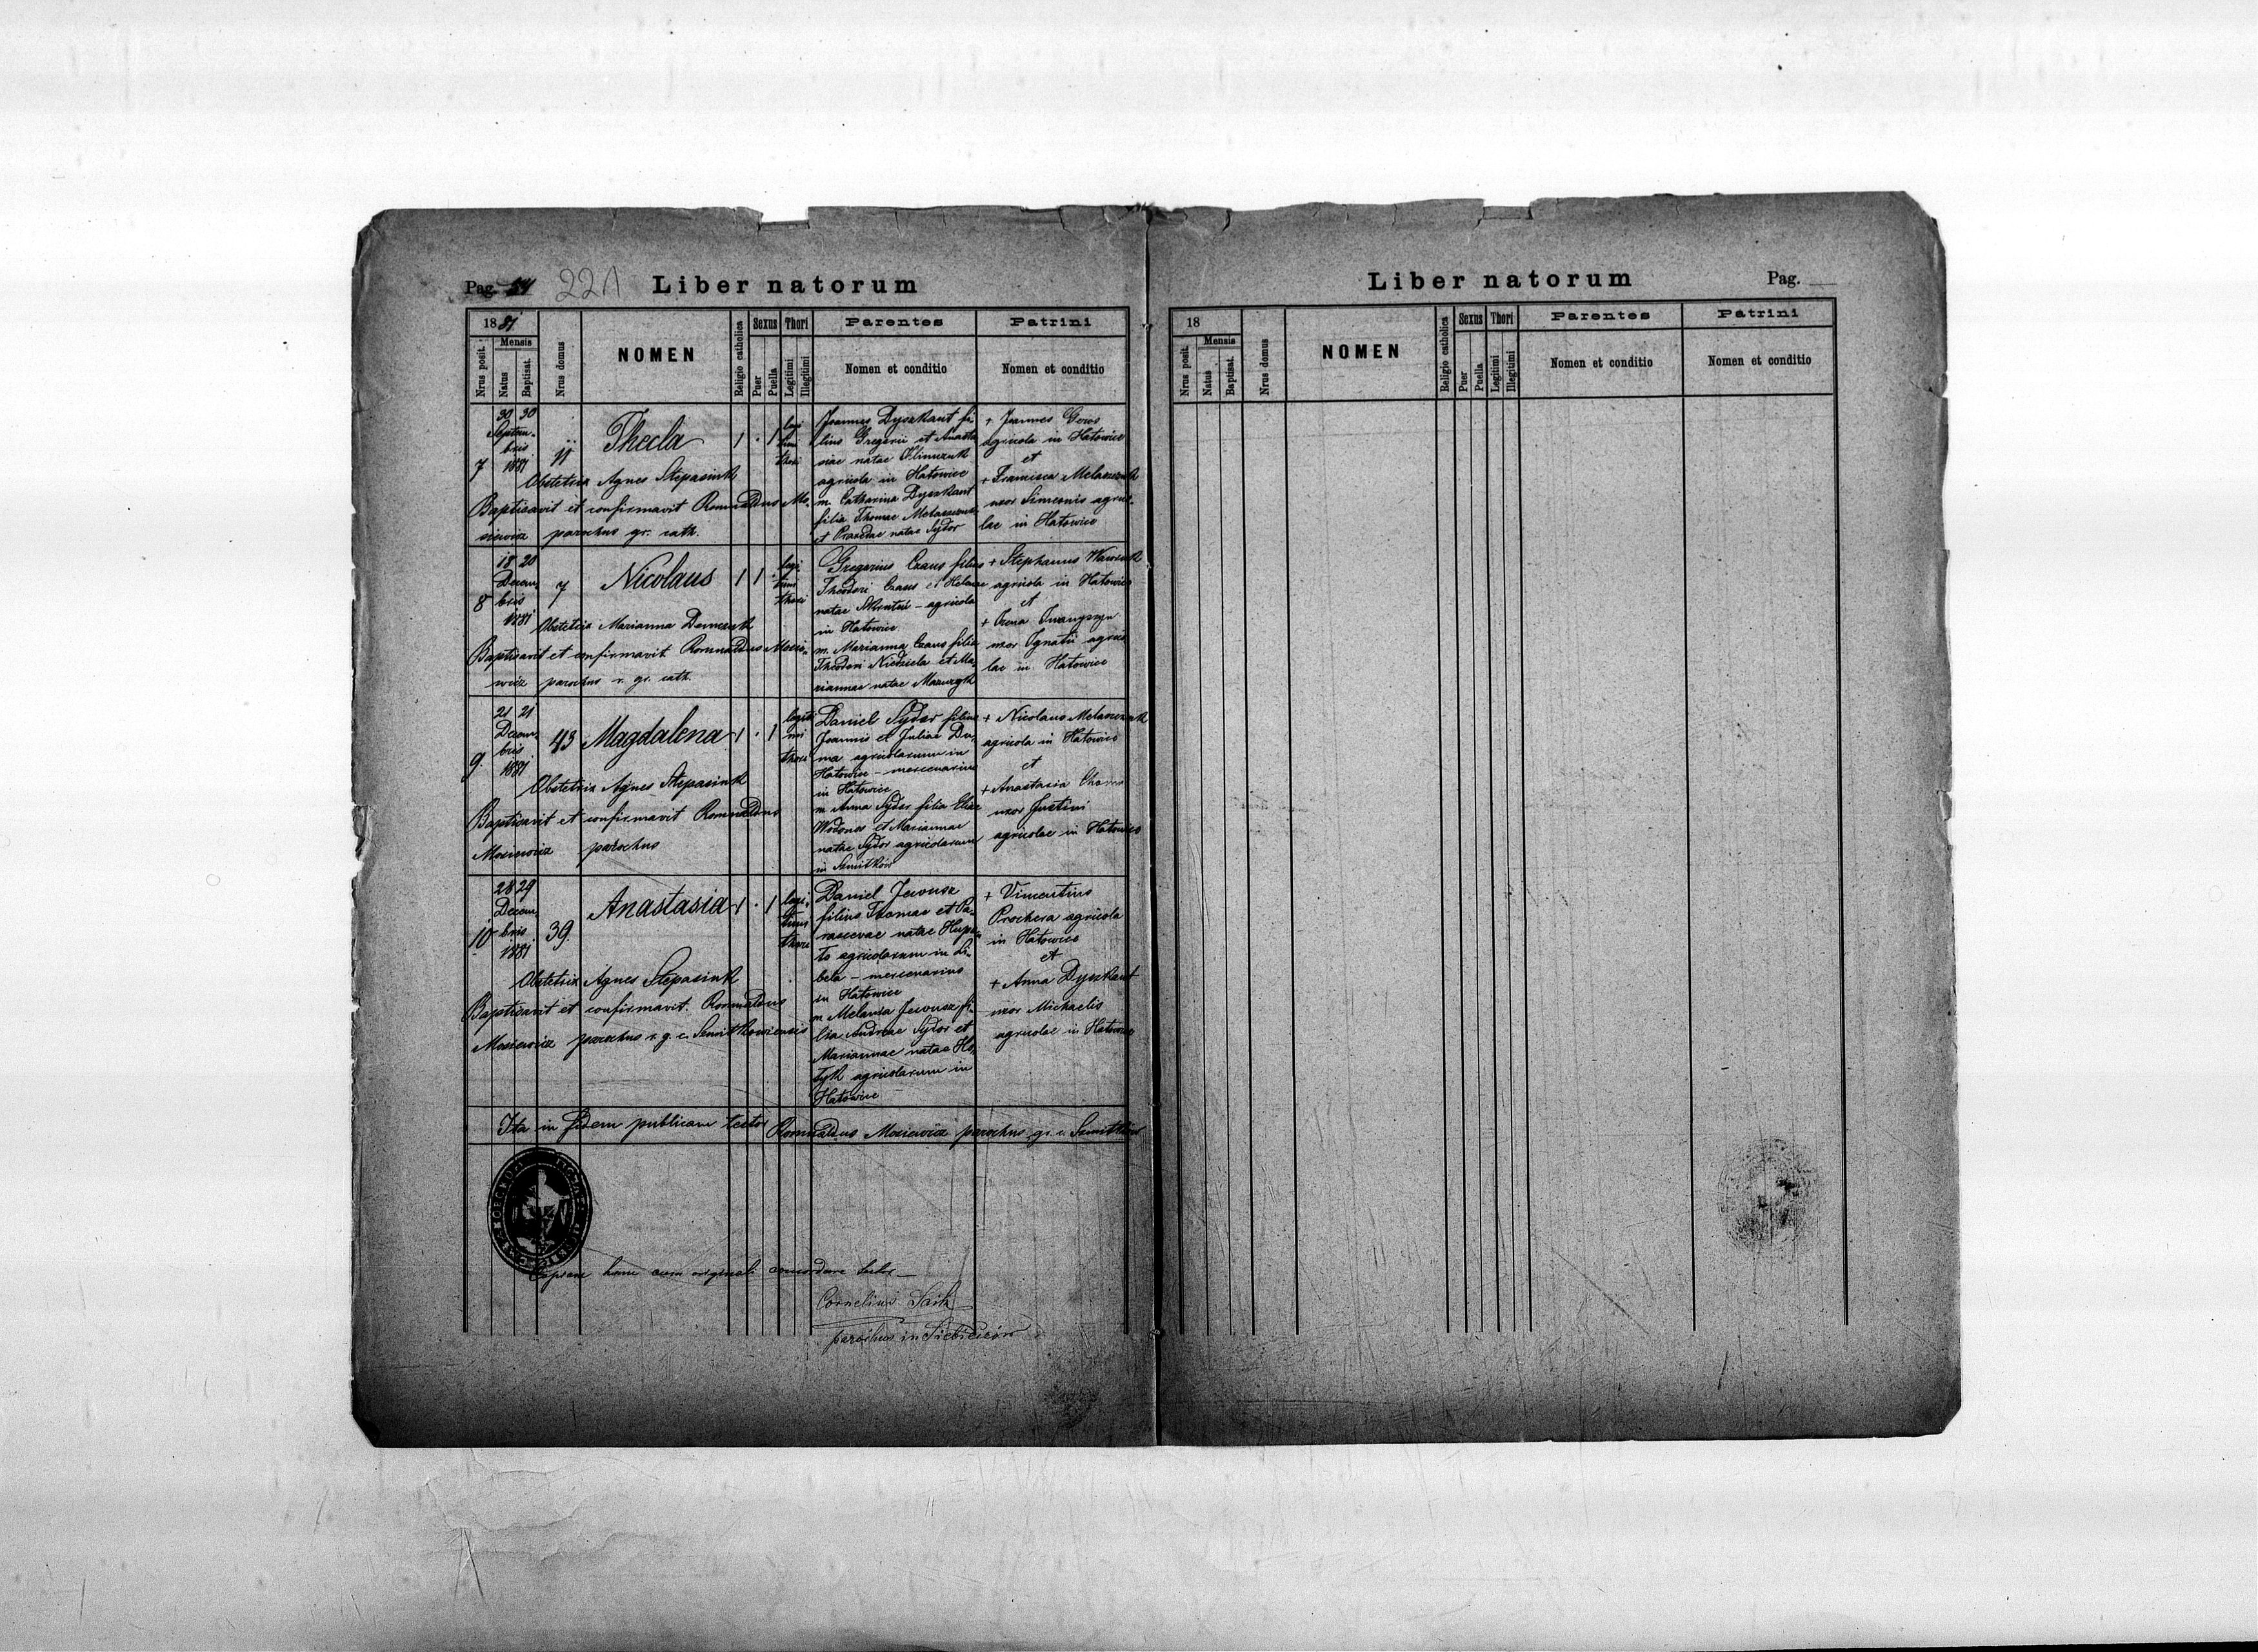 Pag. 54 221 Liber natorum
1881
Nrus posit.
Mensis
Natus
Baptisat.
Nrus domus
NOMEN
Religio catholica
Sexus
Puer
Puella
Thori
Legitimi
Illegitimi
Parentes
Nomen et conditio
Patrini
Nomen et conditio
7
30 30
Septem-
bris
1881
11
Thecla
1 . 1
legi
timi
thori
Obstetrix Agnes Stepasiuk
Baptisavit et confirmavit Romualdus Mo-
siewicz parochus gr. cath.
Joannes Dyszkant fi-
lius Gregorii et Anasta
siae natae Klimczuk
agricola in Hatowice
m. Catharina Dyszkant
filia Thomae
et Praxedae natae Sydor
+ Joannes
agricola in Hatowice
et
+ Francisca
uxor Simeonis agrico-
lae in Hatowice
8
18 20
Decem-
bris
1881
7
Nicolaus
1 1 .
legi
timi
thori
Obstetrix Marianna Demczuk
Baptisavit et confirmavit Romualdus Mosie-
wicz parochus r. gr. cath.
Gregorius Czaus filius
Theodori Czaus et Helenae
natae agricola
in Hatowice
m. Marianna Czaus filia
Theodori Niedziela et Ma-
riannae natae Mazuryk
+ Stephanus Wawrzuk
agricola in Hatowice
et
+ Iwanyszyn
uxor Ignatii agrico
lae in Hatowice
9
21 21
Decem-
bris
1881
43
Magdalena
1 . 1
legiti
mi
thori
Obstetrix Agnes Stepasiuk
Baptisavit et confirmavit Romualdus
Mosiewicz parochus
Daniel Sydor filius
Joannis et Juliae Du-
ma agricolarum in
Hatowice – mercenarius
in Hatowice
m Anna Sydor filia Eliae
Wodonos et Mariannae
natae Sydor agricolarum
in Szmitków
+ Nicolaus
agricola in Hatowice
et
+ Anastasia
uxor Justini
agricolae in Hatowice
10
28 29
Decem-
bris
1881
39.
Anastasia
1 . 1
legi
timi
thori
Obstetrix Agnes Stepasiuk
Baptisavit et confirmavit. Romualdus
Mosiewicz parochus r. g. c. Szmitkowiensis
Daniel Jarosz
filius Thomae et Pa-
rascevae natae
to agricolarum in Li-
bela – mercenarius
in Hatowice
m Melania Jarosz fi-
lia Andreae Sydor et
Mariannae natae Ho-
tyk agricolarum in
Hatowice
+ Vincentius
Prochera agricola
in Hatowice
et
+ Anna Dyszkant
uxor Michaelis
agricolae in Hatowice
Ita in fidem publicam testor Romualdus Mosiewicz parochus gr. c. Szmitków
Copiam hanc cum originali concordare testor
Cornelius
parochus in Siebieczów
Liber natorum Pag.
18
Nrus posit.
Mensis
Natus
Baptisat.
Nrus domus
NOMEN
Religio catholica
Sexus
Puer
Puella
Thori
Legitimi
Illegitimi
Parentes
Nomen et conditio
Patrini
Nomen et conditio